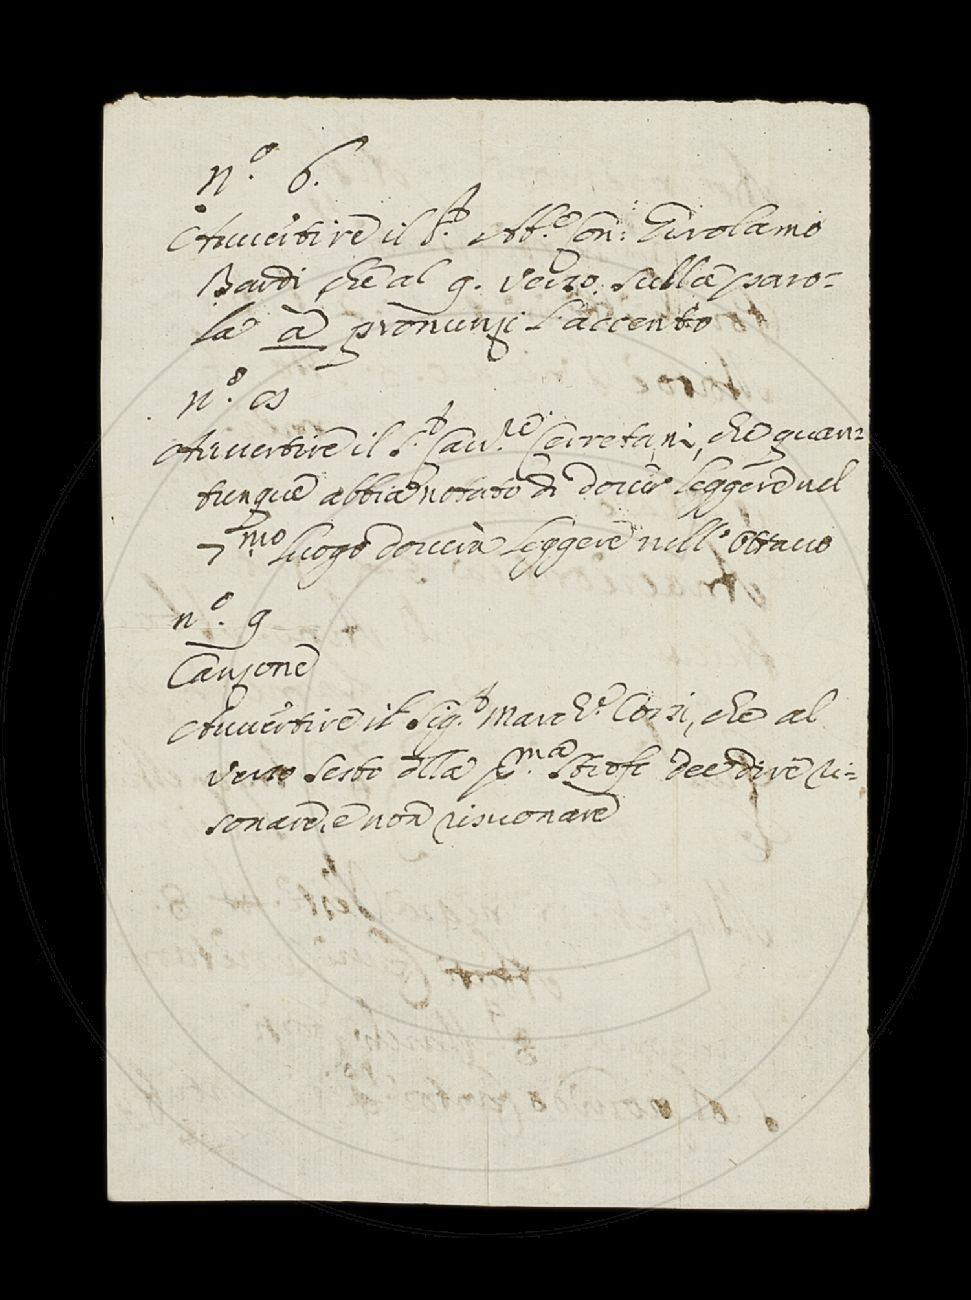 n.º 6.
Avvertire il S.r Ab.e Con: Girolamo
Bardi che al 9. verso sulla paro=
la à pronunzi l'accento
n.º
Avvertire il S.r Cav.re Cerretani, che quan=
tunque abbia notato di dover leggere nel
7.mo luogo doverà leggere nell'Ottavo
n.º 9
Canzone
Avvertire il Sig.r March.e Corsi, che al
verso sesto della p.ma Strofe dee dire ri=
sonare, e non risuonare